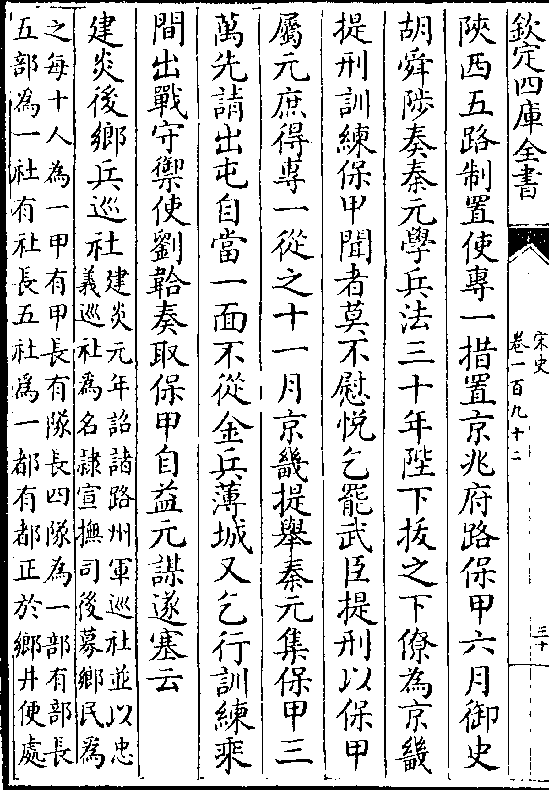 欽定四庫全書
宋史
卷一百九十二
三十
陜西五路制置使專一措置京兆府路保甲六月御史
胡舜陟奏秦元學兵法三十年陛下拔之下僚為京畿
提刑訓練保甲聞者莫不慰悦乞罷武臣提刑以保甲
屬元庶得專一從之十一月京畿提舉秦元集保甲三
萬先請出屯自當一面不從金兵薄城又乞行訓練乘
間出戰守禦使劉韐奏取保甲自益元謀遂塞云
建炎後鄉兵巡社建炎元年詔諸路州軍巡社並以忠
義巡社為名隷宣撫司後募鄉民為
之每十人為一甲有甲長有隊長四隊為一部有部長
五部為一社有社長五社為一都有都正於鄉井便處